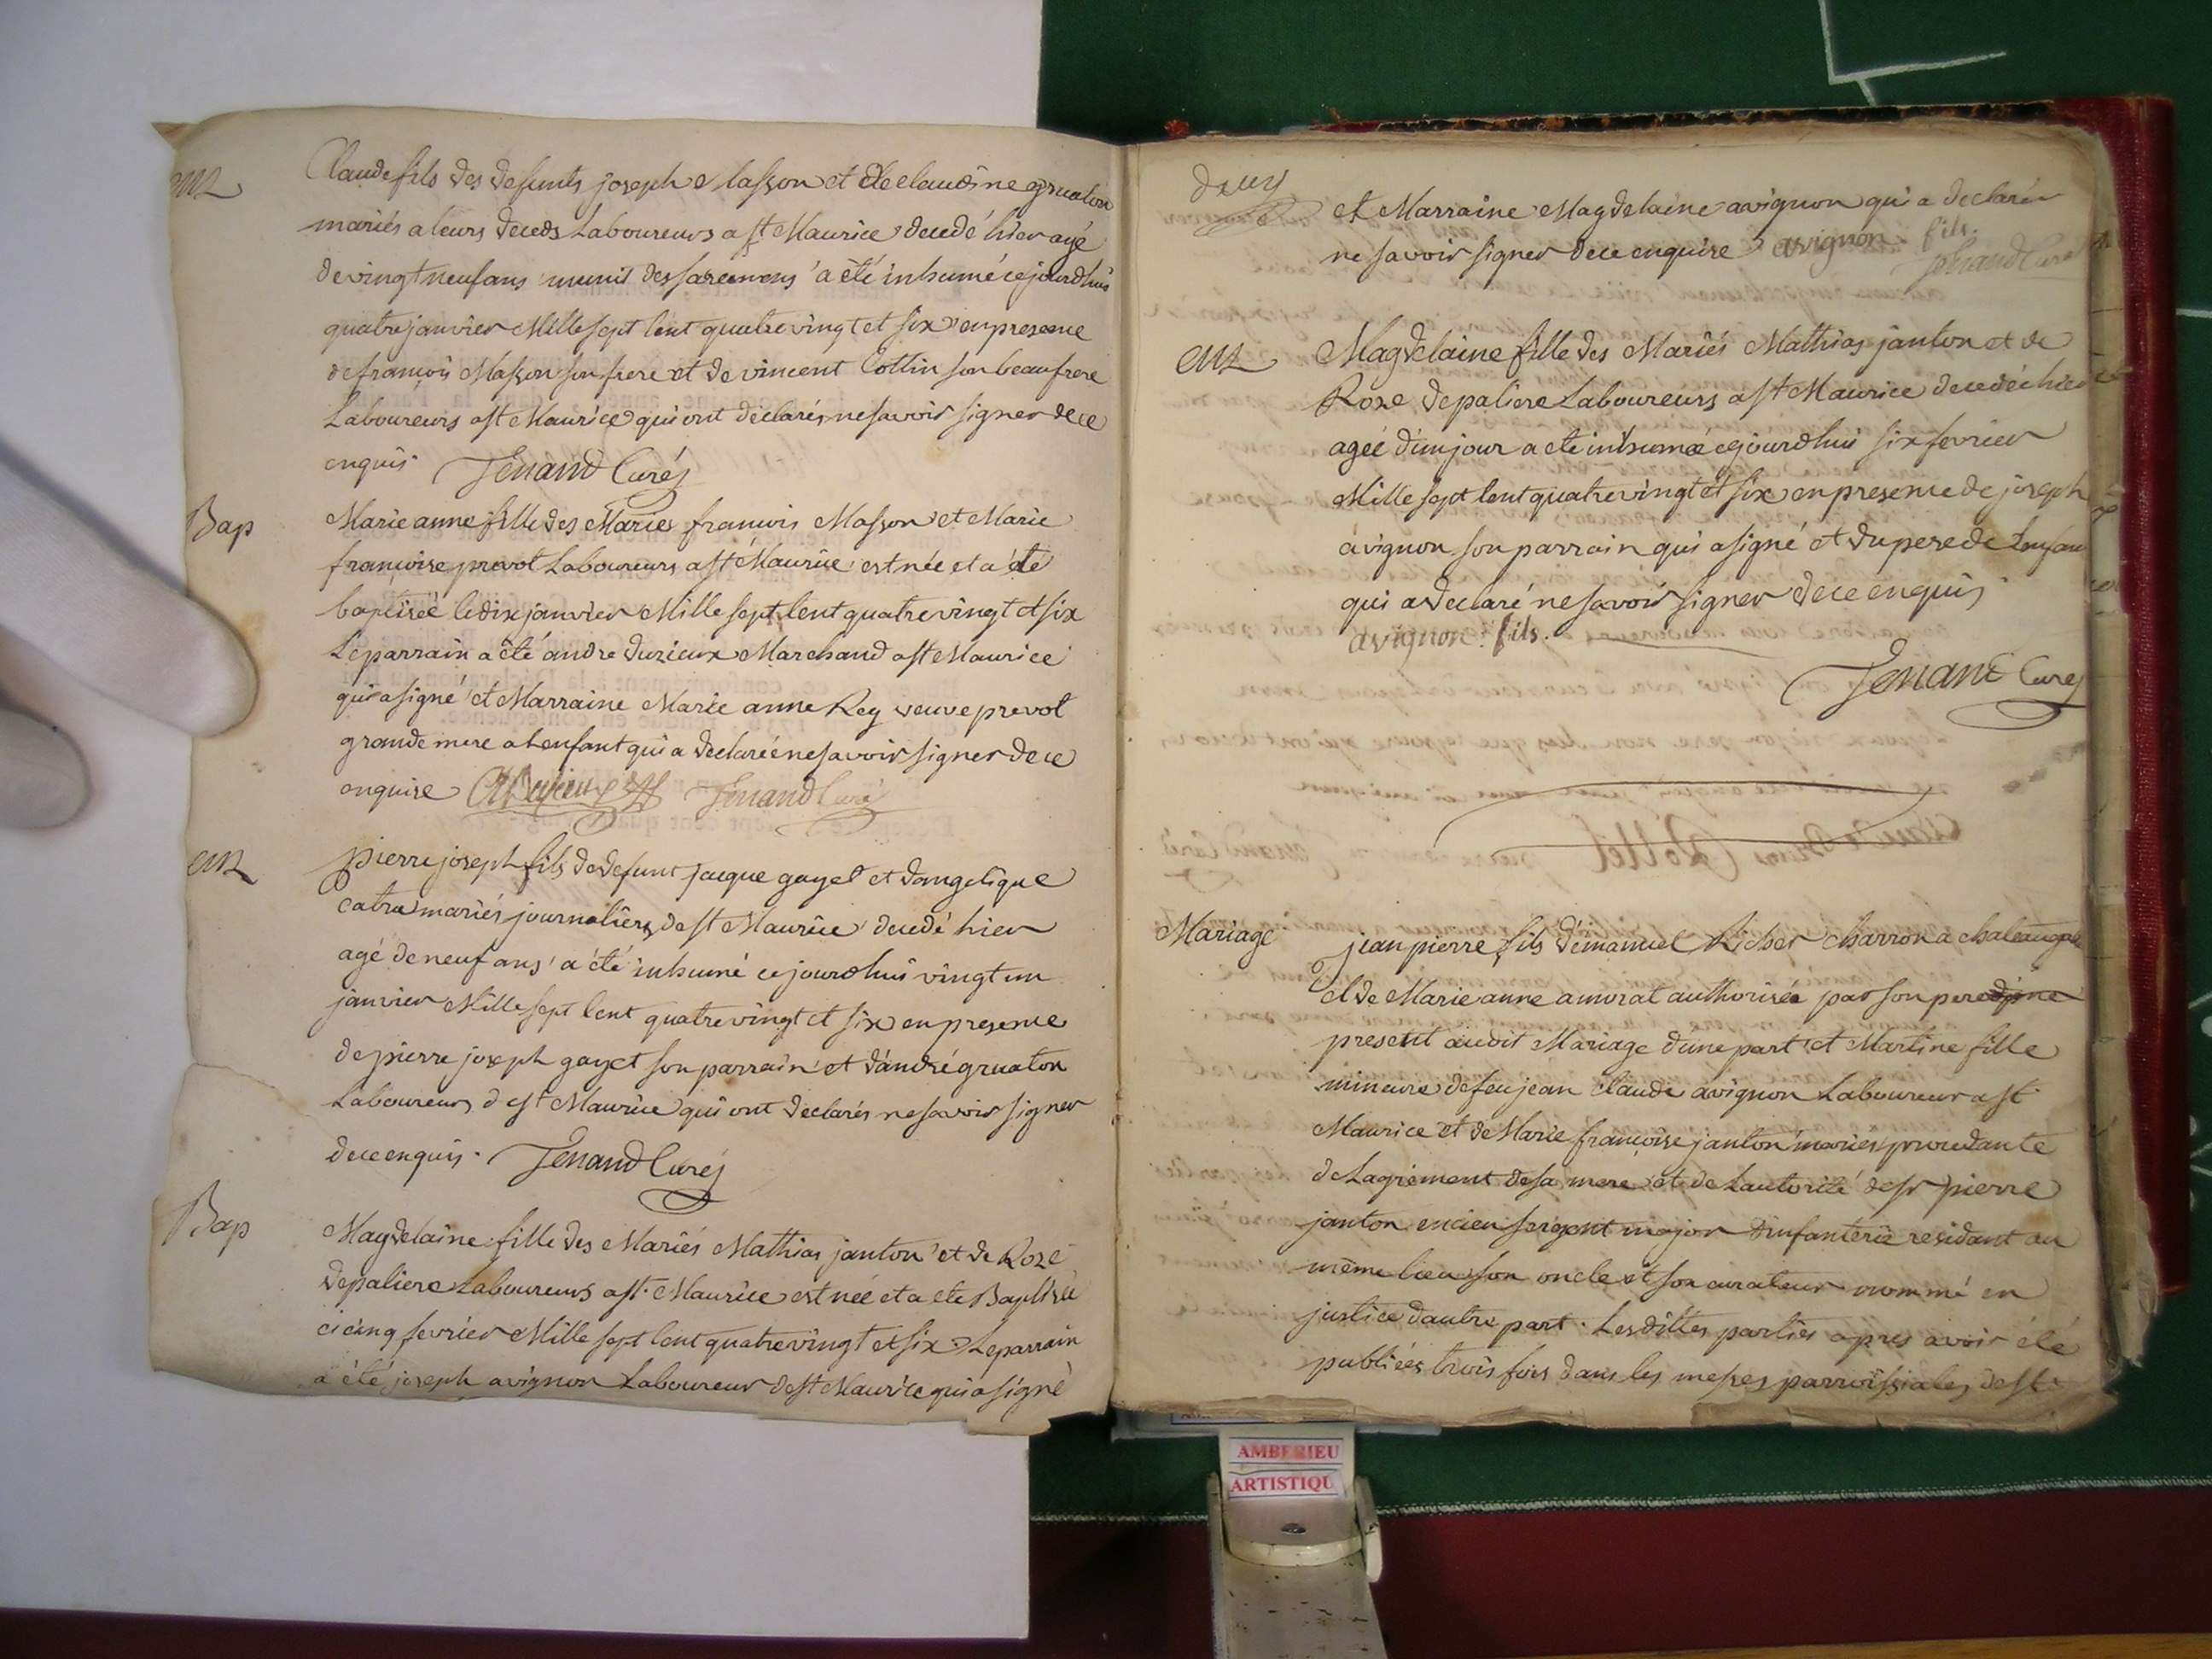 ent
Claude fils des defunts joseph Masson et de claudine gruaton
mariés a leurs deceds Laboureurs a st Maurice decedé hier agé
de vingt neuf ans munit des sacremens a été inhumé ce jourdhui
quatre janvier Mille sept Cent quatre vingt et six en presence
de françois Masson son frere et de vincent Cottin son beaufrere
Laboureurs a st Maurice qui ont déclarés ne savoir signer de ce
enquis Jenand Curé
Bap
Marie anne fille des Mariés francois Masson et Marie
francoise prevot Laboureurs a st Maurice est née et a été
baptisée le dix janvier Mille sept Cent quatre vingt et six
Le parrain a été andre durieux Marchand a st Maurice
qui a signé et Marraine Marie anne Rey veuve prevot
grande mere a Lenfant qui a declaréé ne savoir signer de ce
enquise Jenand Curé
ent
pierre joseph fils de defunt jacque gayet et dangelique
mariés journaliers de st Maurice decedé hier
agé de neuf ans a été inhumé ce jourdhui vingt un
janvier Mille sept Cent quatre vingt et six en presence
de pierre joseph gayet son parrain et dandré gruaton
Laboureurs de st Maurice qui ont declarés ne savoir signer
de ce enquis. Jenand Curé
Bap
Magdelaine fille des Mariés Mathias janton et de Roze
depaliere Laboureurs a st Maurice est née et a ete Baptisée
ci cinq fevrier Mille sept Cent quatre vingt et six. Le parrain
a été joseph avignon Laboureur de st Maurice qui a signé
et Marraine Magdelaine avignon qui a declarée
ne savoir signer de ce enquise avignon fils.
Jenand Curé
ent
Magdelaine fille des Mariés Mathias janton et de
Roze depaliere Laboureurs a st Maurice decedée hier
agée d'un jour a ete inhumée cejourdhui six fevrier
Mille sept Cent quatre vingt et six en presence de joseph
avignon son parrain qui a signé et du pere de Lenfan
qui a declaré ne savoir signer de ce enquis
avignon fils.
Jenand Curé
Mariage
jean pierre fils d'emanuel Richer charron a
et de Marie anne amorat authorisée par son pere
present audit Mariage d'une part et Martine fille
mineure de feu jean Claude avignon Laboureur a st
Maurice et de Marie françoise janton mariés procedante
de Lagrement de sa mere et de Lautorité de sr pierre
janton encien sergent major d'infanterie residant au
même lieu son oncle et son curateur nommé en
justice dautre part. Lesdittes parties apres avoir été
publiées trois fois dans les messes parroissiales de st
AMBERIEU
ARTISTIQU